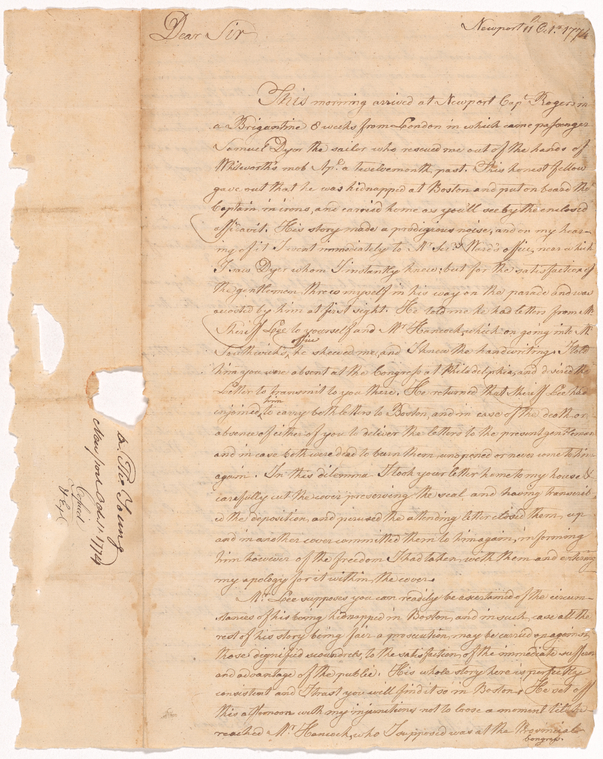 Dear Sir
Newport 11 Oct. 1774
This morning arrived at Newport Capt. Rogers in
a Brigantine 8 weeks from London in which came passenger
Samuel Dyer the sailor who rescued me out of the hands of
Whitworth's mob Ap. a twelvemonth past. This honest fellow
gave out that he was kidnapped at Boston and put on board the
Captain in irons, and carried home as you'll see by the enclosed
affidavit. His story made a prodigious noise, and on my hear-
ing of it I went immediately to Mr. Ward's office, near which
I saw Dyer whom I instantly knew, but for the satisfaction of
the gentlemen threw myself in his way on the parade and was
accosted by him at first sight. He told me he had letters from Mr.
Sheriff Lee to yourself and Mr. Hancock, which on going into Mr.
Southwick's office he shewed me, and I knew the handwriting. I told
him you were absent at the Congress at Philadelphia, and desired the
Letter to transmit to you there. He returned that Sheriff Lee had
enjoined him to carry both letters to Boston, and in case of the death or
absence of either of you to deliver the letters to the present gentleman
and in case both were dead to burn them unopened or never come to him
again. In this dilemma I took your letter home to my house &
carefully cut the cover preserving the seal and having transcrib
ed the deposition, and perused the attending letter closed them up
and in another cover committed them to him again, informing
him however of the freedom I had taken with them and
my apology for it within the cover.
Mr. Lee supposes you can readily be ascertained of the circum-
stances of his being kidnapped in Boston, and in such case all the
rest of his story being fair a prosecution may be carried on against
those dignified scoundrels, to the satisfaction of the immediate sufferer
and advantage of the public. His whole story here is perfectly
consistent and I trust you will find it so in Boston. He set off
this afternoon with my injunctions not to loose a moment till he
reached Mr. Hancock, who I supposed was at the Provincial
Congress.
Dr. Tho Young
Newport Octo 11 1774